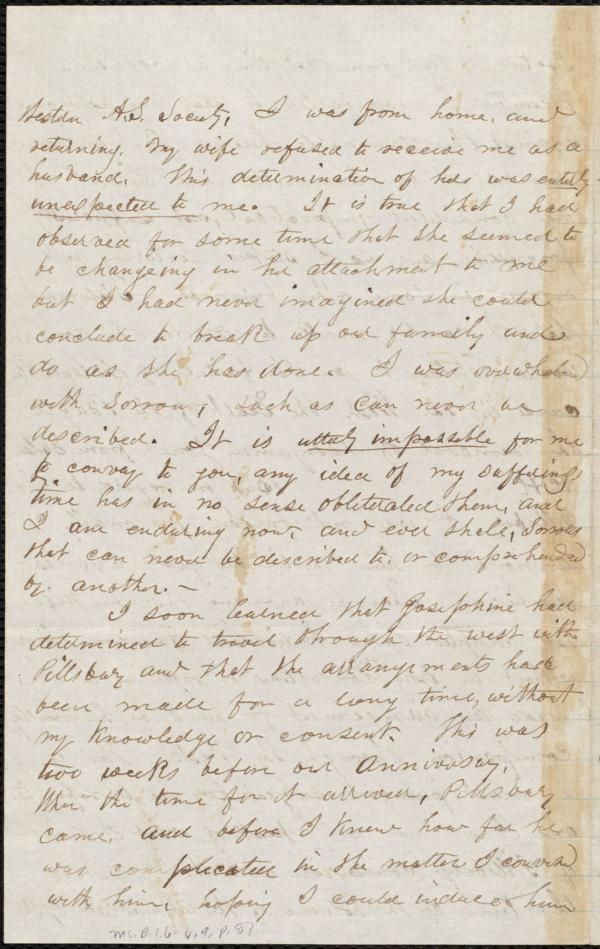 Western A.S. Society, I was from home, and
returning, my wife refused to receive me as a
husband. This determination of hers was entirely
unexpected to me. It is true that I had
observed for some time that she seemed to
be changeing in her attachment to me
but I had never imagined she could
conclude to break up our family and
do as she has done. I was overwhelmed
with sorrow, such as can never be
described. It is utterly impossible for me
to convey to you, any idea of my sufferings
time has in no sense obliterated them, and
I am enduring now, and ever shall, sorrows
that can never be described to, or comprehended
by another. —
I soon learned that Josephine had
determined to travel through the west with
Pillsbury and that the arrangements had
been made for a long time, without
my knowledge or consent. This was
two weeks before our Anniversary.
When the time for it arrived, Pillsbury
came, and before I knew how far he
was complicated in the matter I conversed
with him, hoping I could induce him
Ms.B.1.6 v.9, p.87